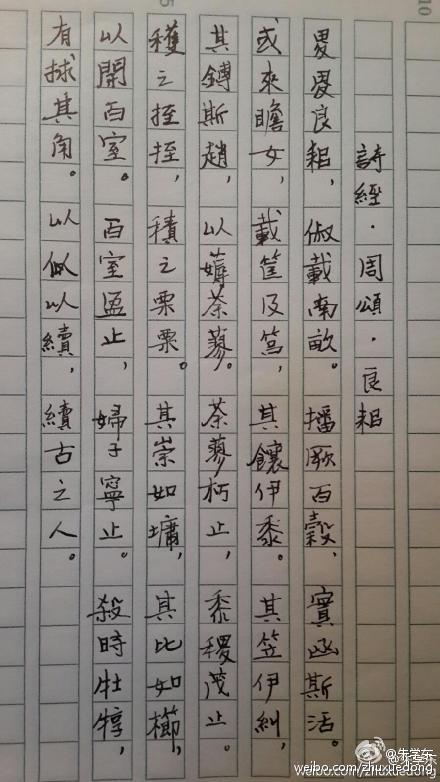 詩經·周頌·良耜
畟畟良耜，俶載南畝。播厥百穀，實函斯活。
或來瞻女，載筐及筥，其饟伊黍。其笠伊糾，
其鎛斯趙，以薅荼蓼。荼蓼朽止，黍稷茂止。
穫之挃挃，積之栗栗。其崇如墉，其比如櫛，
以開百室。百室盈止，婦子寧止。殺時牡犉，
有捄其角。以似以續，續古之人。
10
5
@朱学东
weibo.com/zhuxuedong